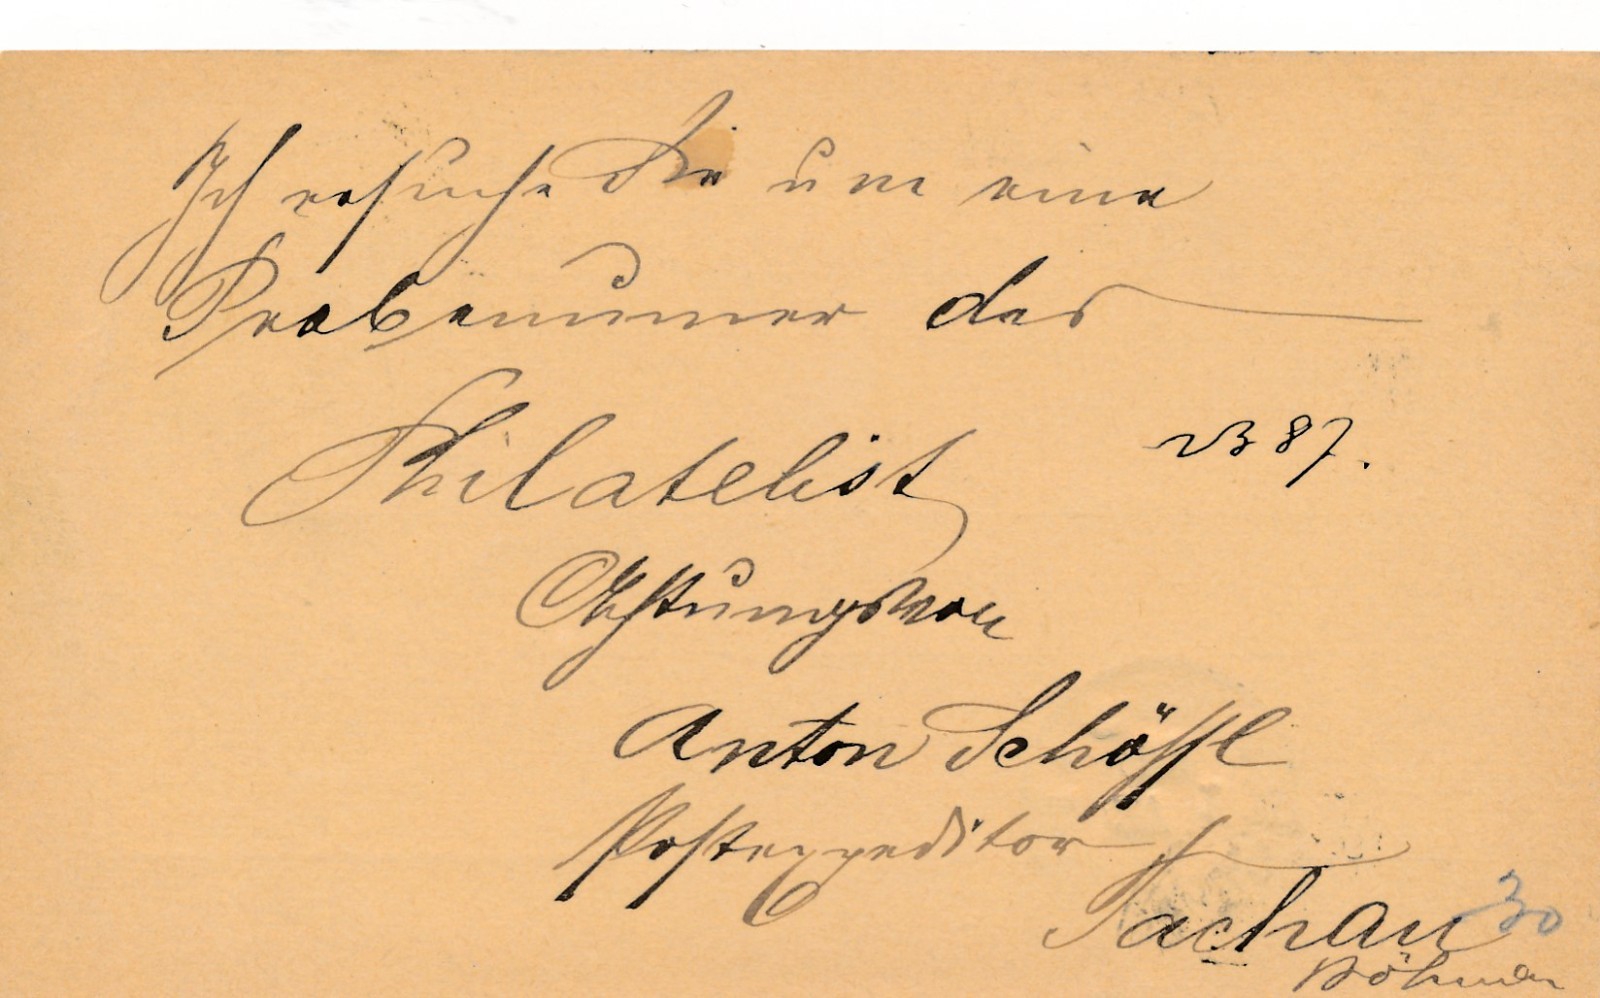 Ich ersuche Sie um eine
Probenummer des
Philatelist
23 87.
Achtungsvoll
Anton Schöffl
Postexpeditor
Tachau
30
Böhmen